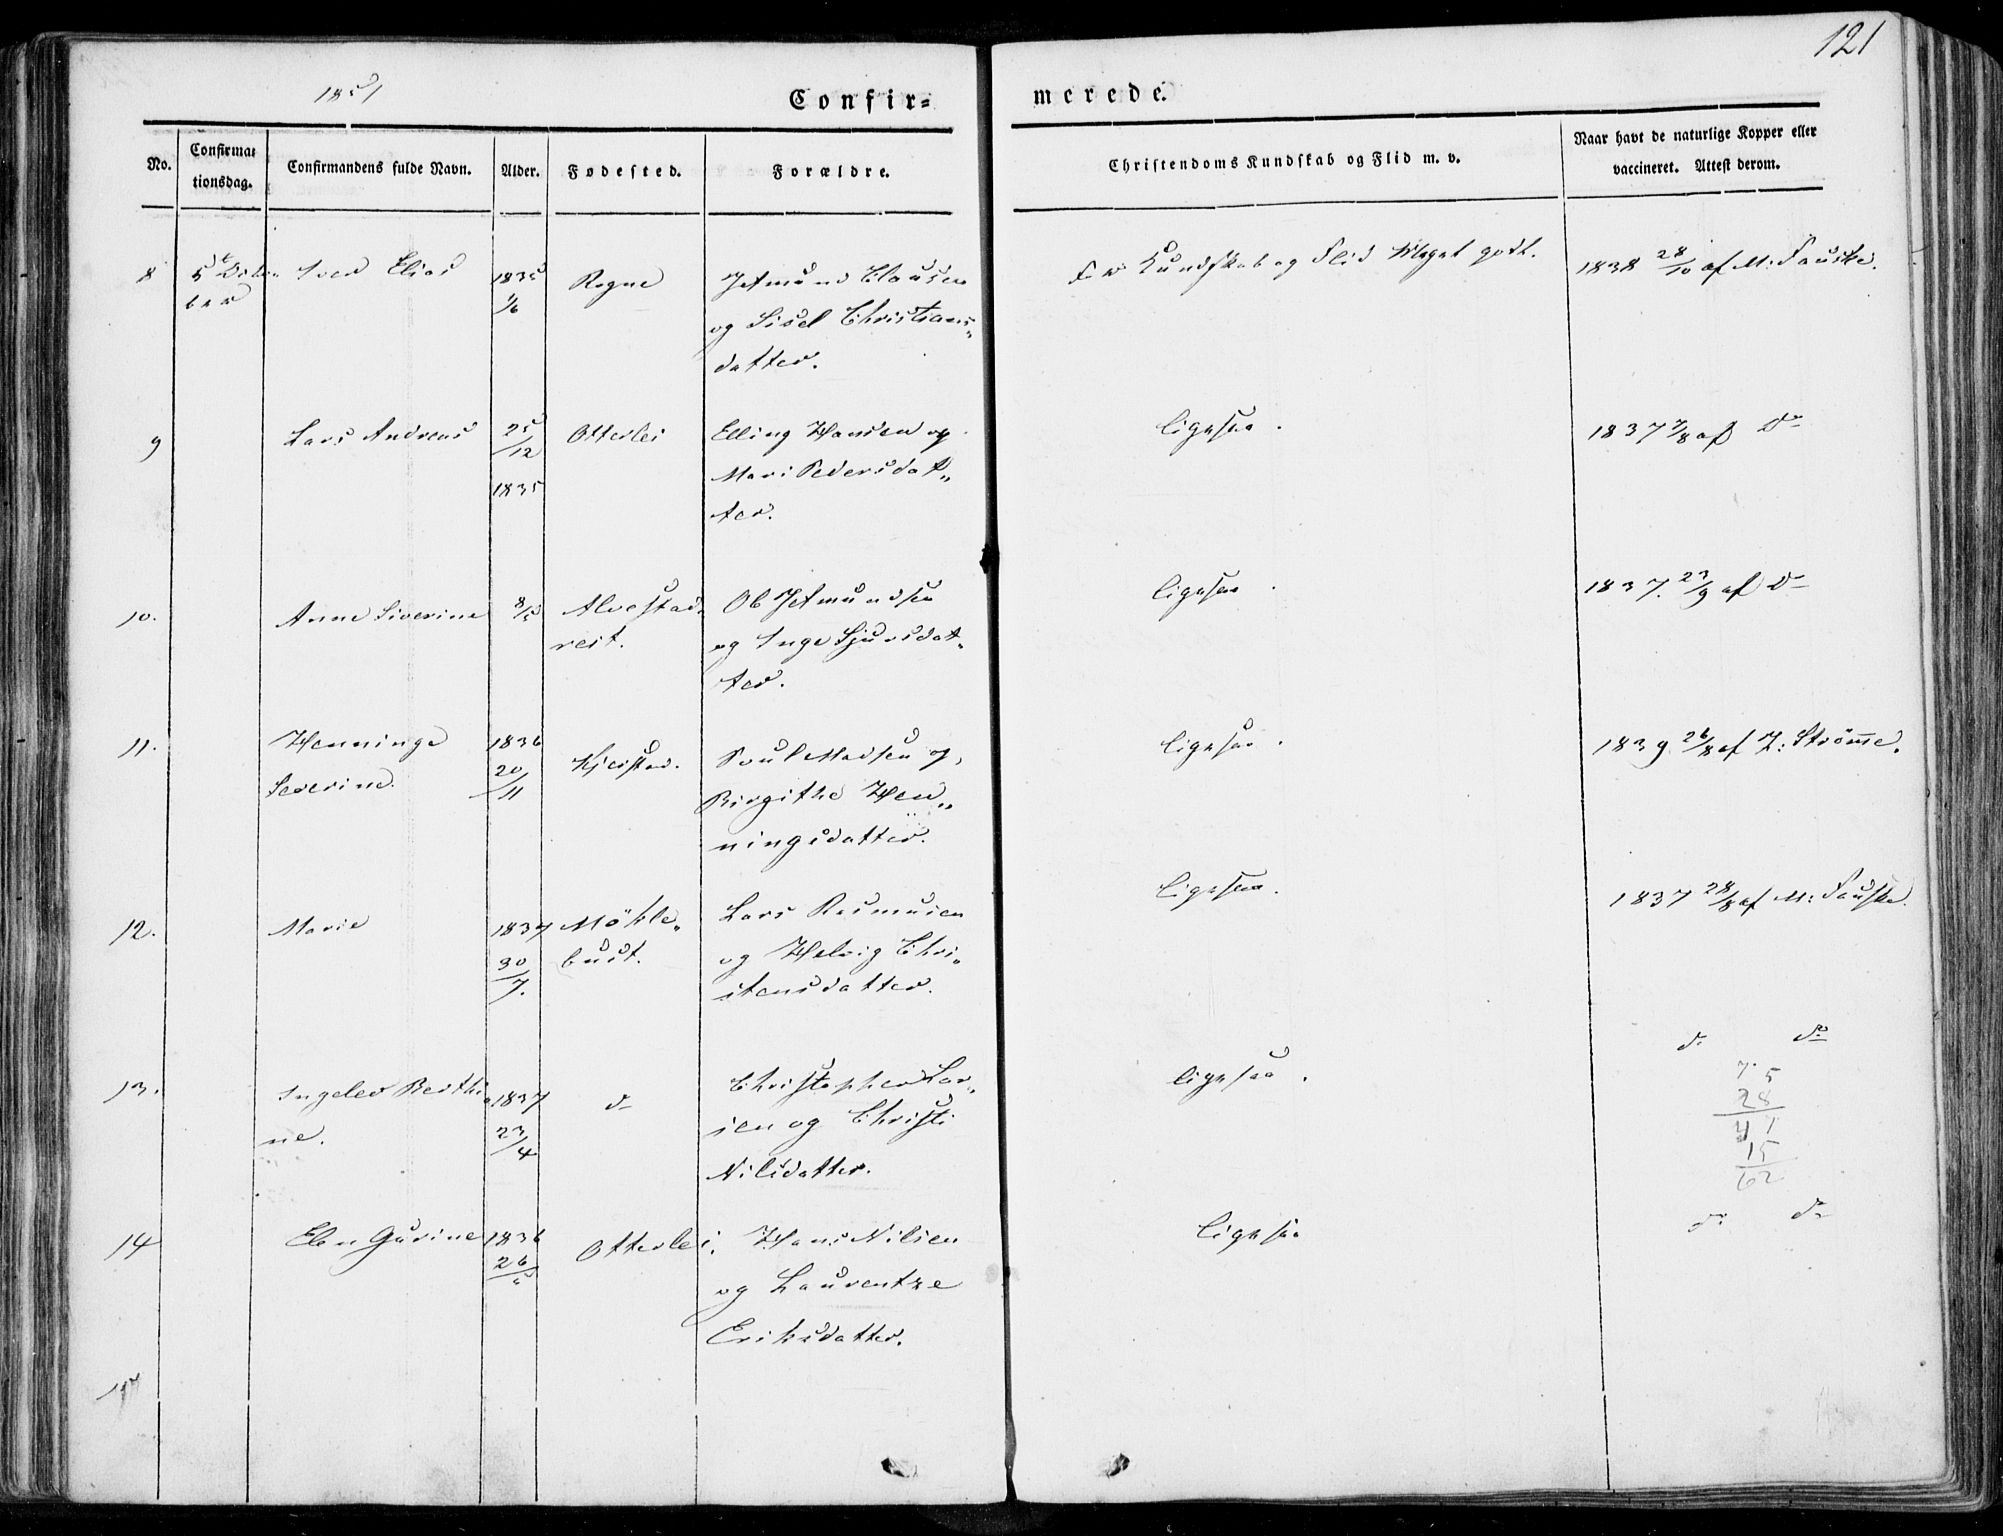 121
1851
Confir=
merede.
No.
Confirma=
tionsdag.
Confirmandens fulde Navn.
Alder.
Fødested.
Forældre.
Christendoms Kundskab og Flid m. v.
Naar havt de naturlige Kopper eller
vaccineret. Attest derom.
8 5te Octo-
ber
Iver Elias
1835
1/6
Rogne
Jetmund Clausen
og Sisel Christians„
datter.
Kundskab og Flid Meget godt.
1838 28/10 af M: Fauske.
9 Lars Andreas
25
/12
1835
Otterlei
Elling Hansen og
Mari Pedersdat„
ter.
ligesaa.
1837 7/8 af Do
10.
Anne Siverine
8/5
Alvestad
reit.
Ol Jetmundsen
og Inge Sjursdat„
ter.
ligesaa.
1837. 23/9 af Do
11.
Henninge
Severine.
1836
20
/11
Kjerstad.
Poul Madsen og
Birgithe Hen„
ningsdatter.
ligesaa.
1839 26/8 af J: Strømme.
12.
Marie
1837
30
/7.
Möhle„
bust.
Lars Rasmusen
og Helvig Chri„
stensdatter.
ligesaa.
1837 28/8 af M: Fauske.
13.
Ingeler Berthi
ne.
1837
23
/4
do
Christopher Lar„
sen og Christi
Nilsdatter.
ligesaa.
do do
75
28
41
15
62
14
Elen Gurine
1836
26
Otterlei.
Hans Nilsen
og Laurentze
Eriksdatter.
ligesaa
do do